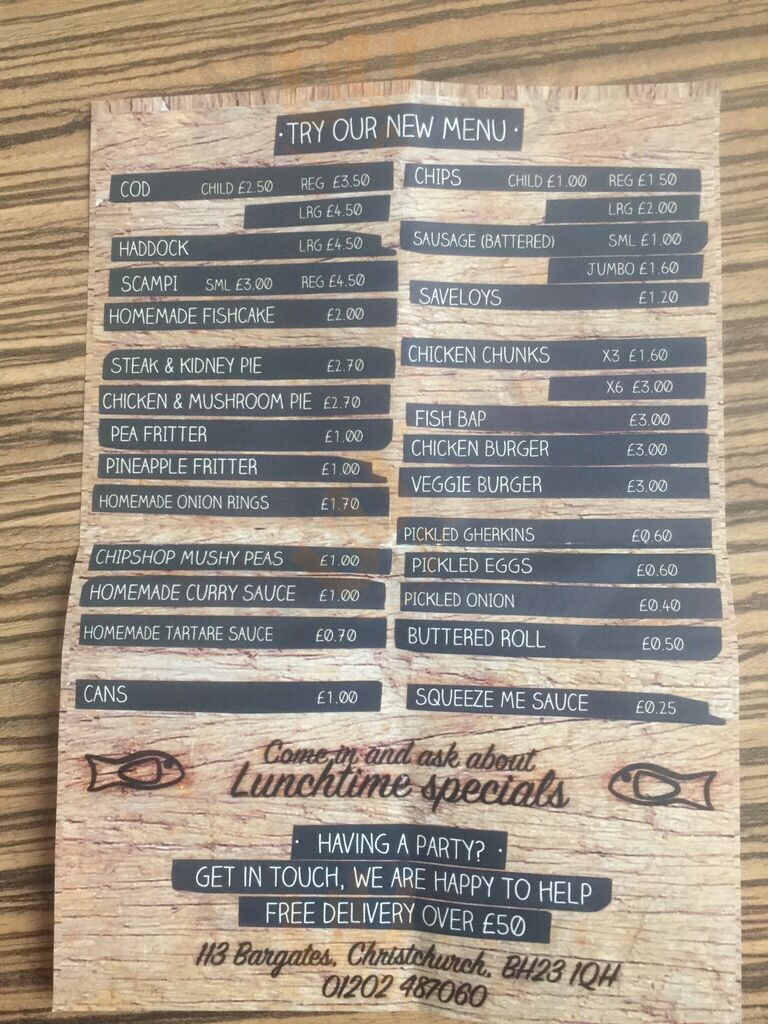 · TRY OUR NEW MENU ·
COD CHILD £2.50 REG £3.50
LRG £4.50
HADDOCK LRG £4.50
SCAMPI SML £3.00 REG £4.50
HOMEMADE FISHCAKE £2.00
STEAK & KIDNEY PIE £2.70
CHICKEN & MUSHROOM PIE £2.70
PEA FRITTER £1.00
PINEAPPLE FRITTER £1.00
HOMEMADE ONION RINGS £1.70
CHIPSHOP MUSHY PEAS £1.00
HOMEMADE CURRY SAUCE £1.00
HOMEMADE TARTARE SAUCE £0.70
CANS £1.00
CHIPS CHILD £1.00 REG £1.50
LRG £2.00
SAUSAGE (BATTERED) SML £1.00
JUMBO £1.60
SAVELOYS £1.20
CHICKEN CHUNKS X3 £1.60
X6 £3.00
FISH BAP £3.00
CHICKEN BURGER £3.00
VEGGIE BURGER £3.00
PICKLED GHERKINS £0.60
PICKLED EGGS £0.60
PICKLED ONION £0.40
BUTTERED ROLL £0.50
SQUEEZE ME SAUCE £0.25
Come in and ask about
Lunchtime specials
· HAVING A PARTY? ·
GET IN TOUCH, WE ARE HAPPY TO HELP
FREE DELIVERY OVER £50
113 Bargates, Christchurch, BH23 1QH
01202 487060